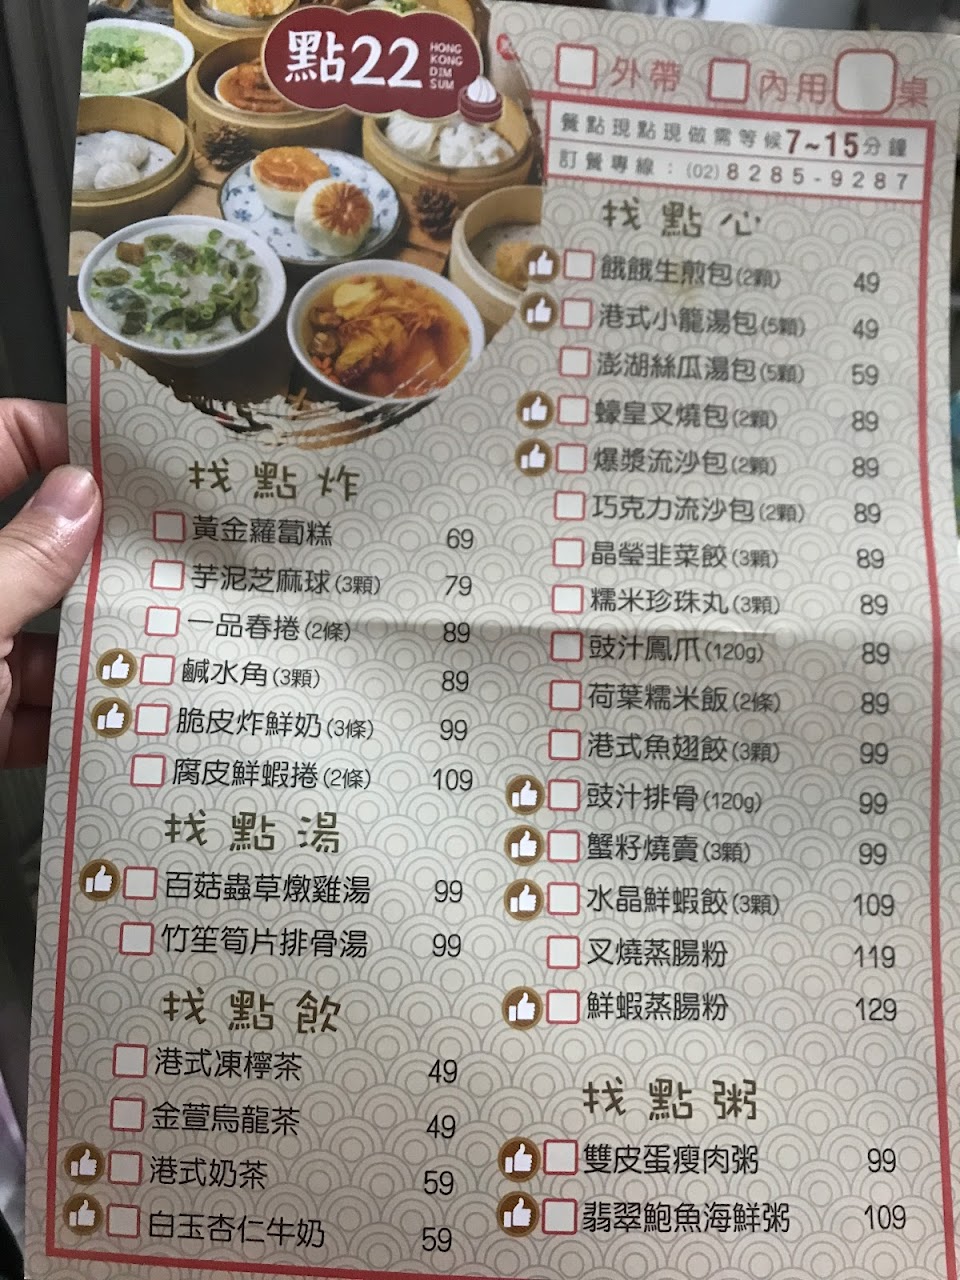 點22
HONG
KONG
DIM
SUM
外帶 內用 桌
餐點現點現做需等候7~15分鐘
訂餐專線：(02)8285-9287
找點心
餓餓生煎包(2顆) 49
港式小籠湯包(5顆) 49
澎湖絲瓜湯包(5顆) 59
蠔皇叉燒包(2顆) 89
爆漿流沙包(2顆) 89
巧克力流沙包(2顆) 89
晶瑩韭菜餃(3顆) 89
糯米珍珠丸(3顆) 89
豉汁鳳爪(120g) 89
荷葉糯米飯(2條) 89
港式魚翅餃(3顆) 99
豉汁排骨(120g) 99
蟹籽燒賣(3顆) 99
水晶鮮蝦餃(3顆) 109
叉燒蒸腸粉 119
鮮蝦蒸腸粉 129
找點粥
雙皮蛋瘦肉粥 99
翡翠鮑魚海鮮粥 109
找點炸
黃金蘿蔔糕 69
芋泥芝麻球(3顆) 79
一品春捲(2條) 89
鹹水角(3顆) 89
脆皮炸鮮奶(3條) 99
腐皮鮮蝦捲(2條) 109
找點湯
百菇蟲草燉雞湯 99
竹笙筍片排骨湯 99
找點飲
港式凍檸茶 49
金萱烏龍茶 49
港式奶茶 59
白玉杏仁牛奶 59